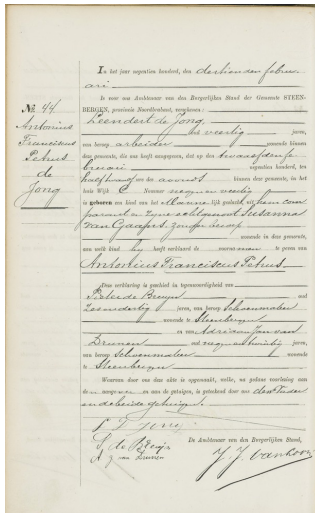 In het jaar negentien honderd, den dertienden februari
No. 44
Antonius
Franciscus
Petrus
de
Jong
is voor ons Ambtenaar van den Burgerlijken Stand der Gemeente STEEN-
BERGEN, provincie Noordbrabant, verschenen:
Leendert de Jong
oud veertig jaren,
van beroep arbeider wonende binnen
deze gemeente, die ons heeft aangegeven, dat op den twaalfden fe-
bruari dezes jaars, ten
half twaalf ure des avonds binnen deze gemeente, in het
huis Wijk C Nommer negen en veertig
is geboren een kind van het Mannelijk geslacht, uit hem com-
parant en zijne echtgenoot Susanna
van Gaapen, zonder beroep
wonende in deze gemeente,
aan welk kind hij heeft verklaard de voornamen te geven van
Antonius Franciscus Petrus
Deze verklaring is geschied in tegenwoordigheid van
Pieter de Bruyn oud
Zesendertig jaren, van beroep Schoenmaker
wonende te Steenbergen
en van Adriaan Jan van
Drunen oud negenentwintig jaren,
van beroep Schoenmaker wonende
te Steenbergen
Waarvan door ons deze akte is opgemaakt, welke, na gedane voorlezing aan
de en aan de getuigen, is geteekend door ons den Vader
en de beide getuigen.
L D Jong
P. de Bruijn
A. J. van Drunen
De Ambtenaar van den Burgerlijken Stand,
J. J. van Loon